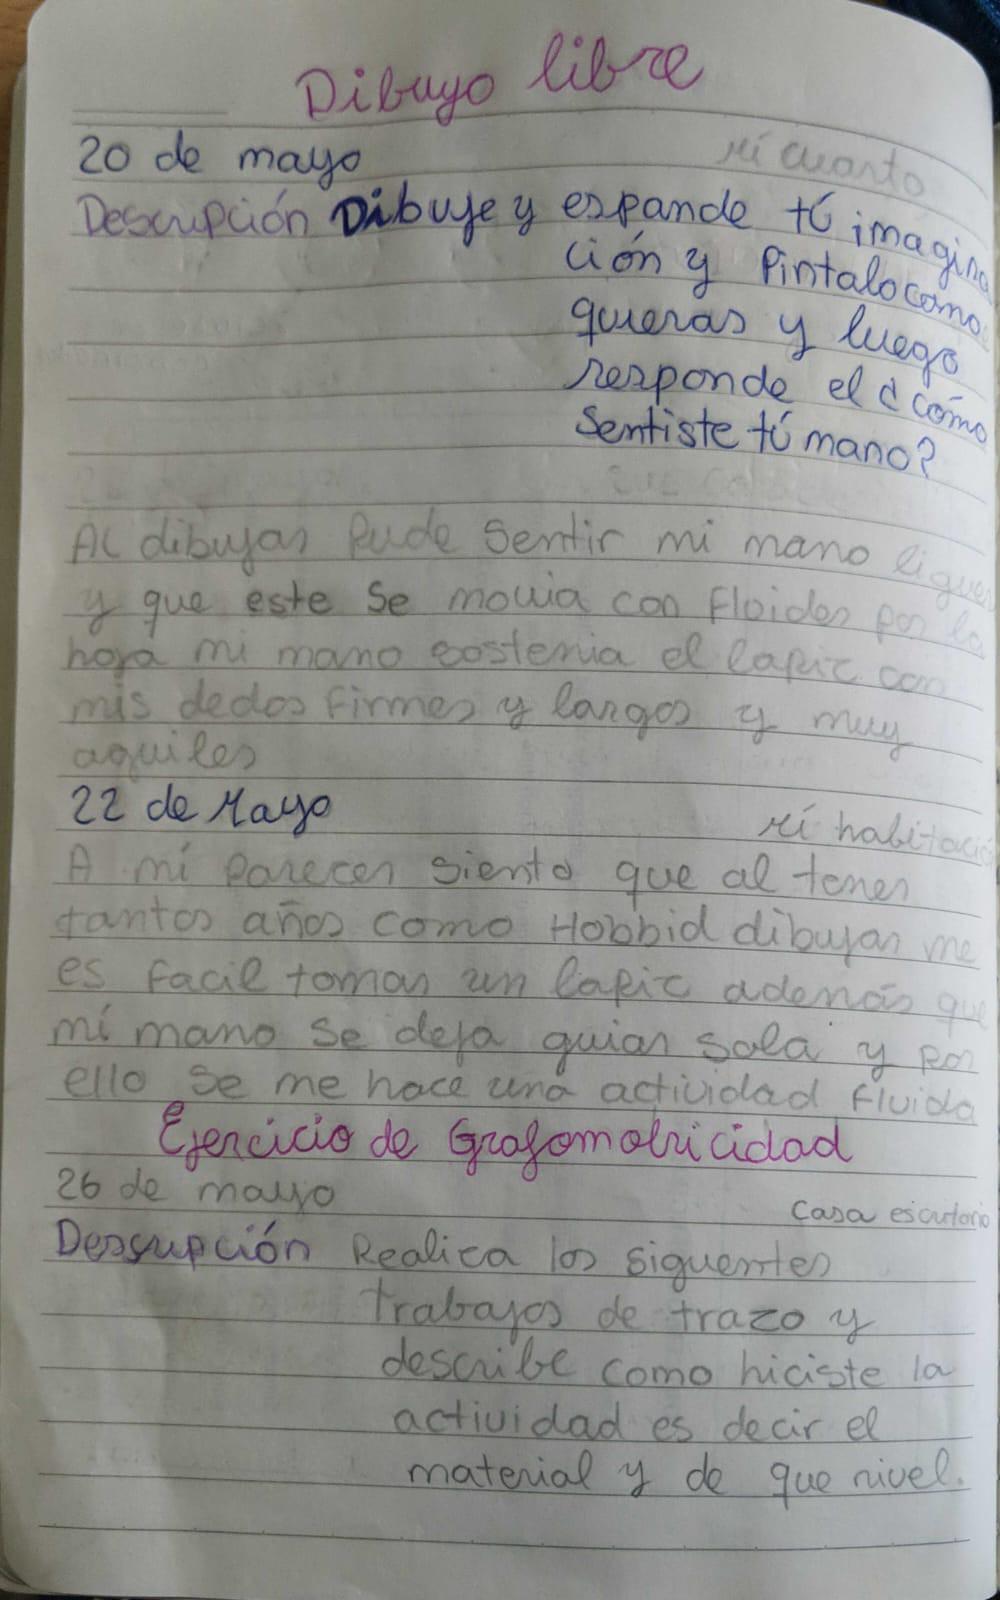 Dibuyo libre
20 de mayo
Mi cuarto
Descripción Dibuje y espande tú imagina
ción y Pintalo como
quieras y luego
responde el ¿ cómo
Sentiste tú mano?
Al dibujar Pude Sentir mi mano liguer
y que este se movia con Floider por la
hoja mi mano sostenia el lapiz con
mis dedos Firmes y largos y muy
aquiles
22 de Mayo
Mi habitació
A mi parecer siento que al tener
tantos años como Hobbid dibujar me
es Facil tomar un lapiz ademas que
mi mano se deja guiar sola y por
ello se me hace una actividad Fluida
Ejercicio de Grafomotricidad
26 de mayo
Casa escritorio
Descripción Realica los siguentes
trabajos de trazo y
describe como hiciste la
actividad es decir el
material y de que nivel.